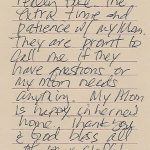 take the
extra time and
patience w/ my Mom.
They are prompt to
call me if they
have questions or
my Mom needs
anything. My Mom
is happy in her new
home. Thank you
& God bless all
of your staff!